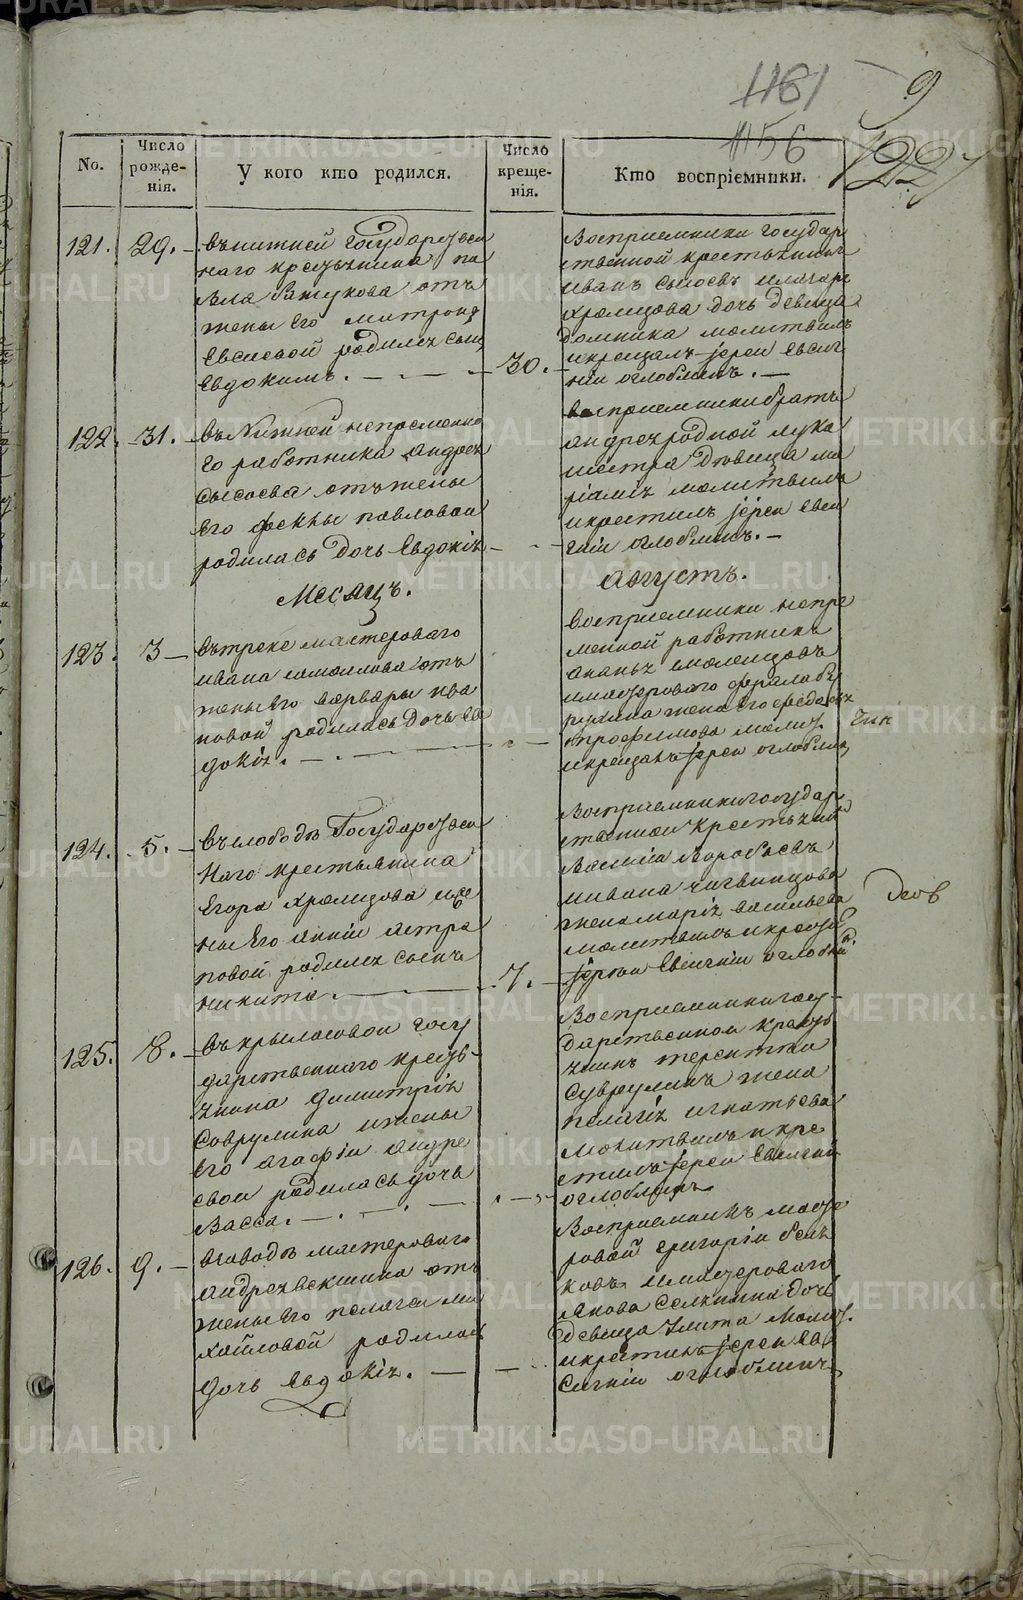 1181
9
1156
No.
Число рожде-нія.
У кого кто родился.
Число креще-нія.
Кто воспріемники.
121.
29.
въ нижней государствен
наго крестьянина па
вла
отъ
жены его матрона
Евсиевой родился сынъ
Евдокимъ.
30.
Восприемники государ
ственной крестьянинъ
иванъ сысоевъ
Храмцова дочь девица
домника молитвилъ
и крещалъ иереи Евсиг
ний оглоблинъ.
122.
31.
въ Нижней непременна
го работника андрея
сысоева отъ жены
его феклы павловои
родилась дочь Евдокія
восприемники братъ
андрея родной лука
и сестра девица ма
рiамiя молитвилъ
и крестилъ иереи Евси
гнiи оглоблинъ.
Месяцъ.
августъ.
123.
3
въ треке мастероваго
ивана самоилова отъ
жены его варвары ива
новой родилась дочь ев
докiя.
восприемники непре
менной работникъ
ананья
и мастероваго
жена его федосья
трофимова молит.
и крещалъ иереи оглоблинъ
124.
5.
въ слободъ Государствен
наго крестьянина
Егора Храмцова и же
ны его анніи астра
повой родился сынъ
никита.
7.
Восприемники государ
ственнои крестьянинъ
Василiи воробьевъ
и ивана чигвинцова
жена марiя васильева
молитвилъ и крестилъ
iереи Евсигнiи оглоблинъ
125.
8.
въ крыласовои госу
дарственнаго кресть-
янина димитрiя
Соврулина и жены
его агафiи андре
евои родилась дочь
Васса.
Восприемники госу-
дарственнои кресть
янинъ терентии
Суврулинъ жена
пелагiя игнатьева
молитвилъ и кре
стилъ iереи Евсигнiи
оглоблинъ
126.
9.
въ заводъ мастероваго
андрея векшина отъ
жены его пелагеи ми
хайловой родилась
дочь Евдокiя.
Восприемникъ масте
ровой григорiи бели
ковъ и мастероваго
Якова Селянина дочь
девица Улита молит.
и крестилъ iереи Ев
сигнiи оглоблинъ
METRIKI.GASO-URAL.RU